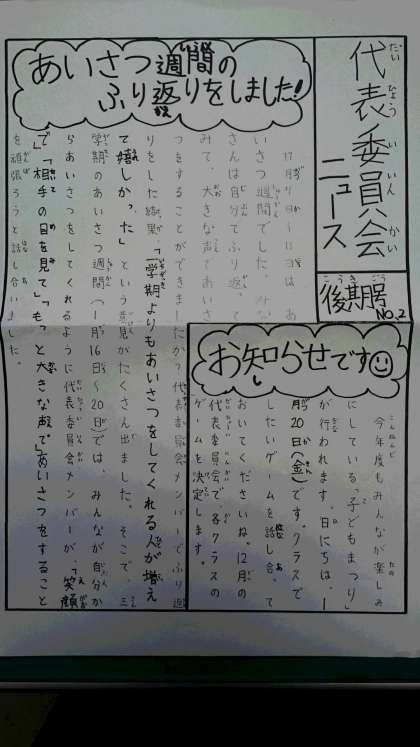 代表委員会
ニュース
後期号
No.2
あいさつ週間の
ふり返りをしました!
11月7日~11日は、あ
いさつ週間でした。みな
さんは自分でふり返って
みて、大きな声であいさ
つをすることができましたか?代表委員会メンバーでふり返
りをした結果、「一学期よりもあいさつをしてくれる人が増え
て嬉しかった」という意見がたくさん出ました。そこで、三
学期のあいさつ週間(1月16日~20日)では、みんなが自分か
らあいさつをしてくれるように代表委員会メンバーが、「笑顔
で」「相手の目を見て」「もっと大きな声で」あいさつをすること
を頑張ろうと話し合いました。
お知らせです
今年度もみんなが楽しみ
にしている「子どもまつり」
が行われます。日にちは、1
月20日(金)です。クラスで
したいゲームを話し合って
おいてくださいね。12月の
代表委員会で、各クラスの
ゲームを決定します。